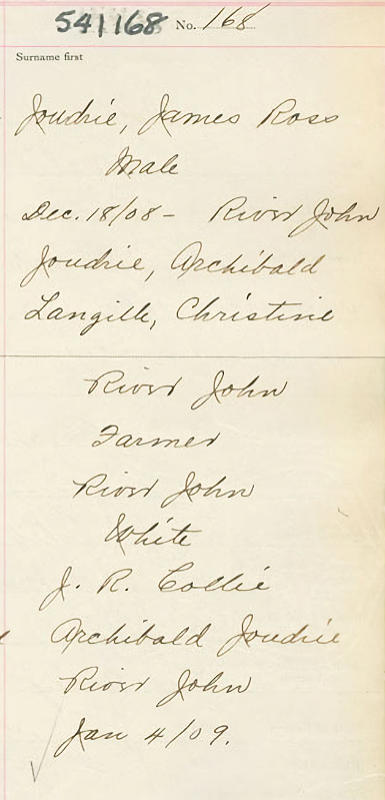 541168 No. 168
Surname first
Joudrie, James Ross
Male
Dec. 18/08 - River John
Joudrie, Archibald
Langille, Christine
River John
Farmer
River John
White
J. R. Collie
Archibald Joudrie
River John
Jan 4/09.